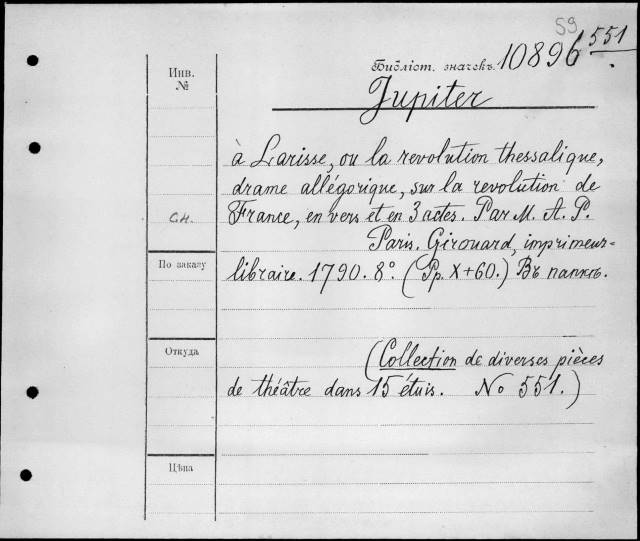 59
Библіот. значекъ. 10896 551
Инв.
№
Jupiter
à Larisse, ou la revolution thessalique,
drame allégorique, sur la revolution de
France, en vers et en 3 actes. Par M. A. P.
Сн.
Paris. Girouard, imprimeur-
libraire. 1790. 8º. (Pp. X+60.) Въ папкѣ.
По заказу
Откуда
(Collection de diverses pièces
de théâtre dans 15 étuis. No 551.)
Цѣна